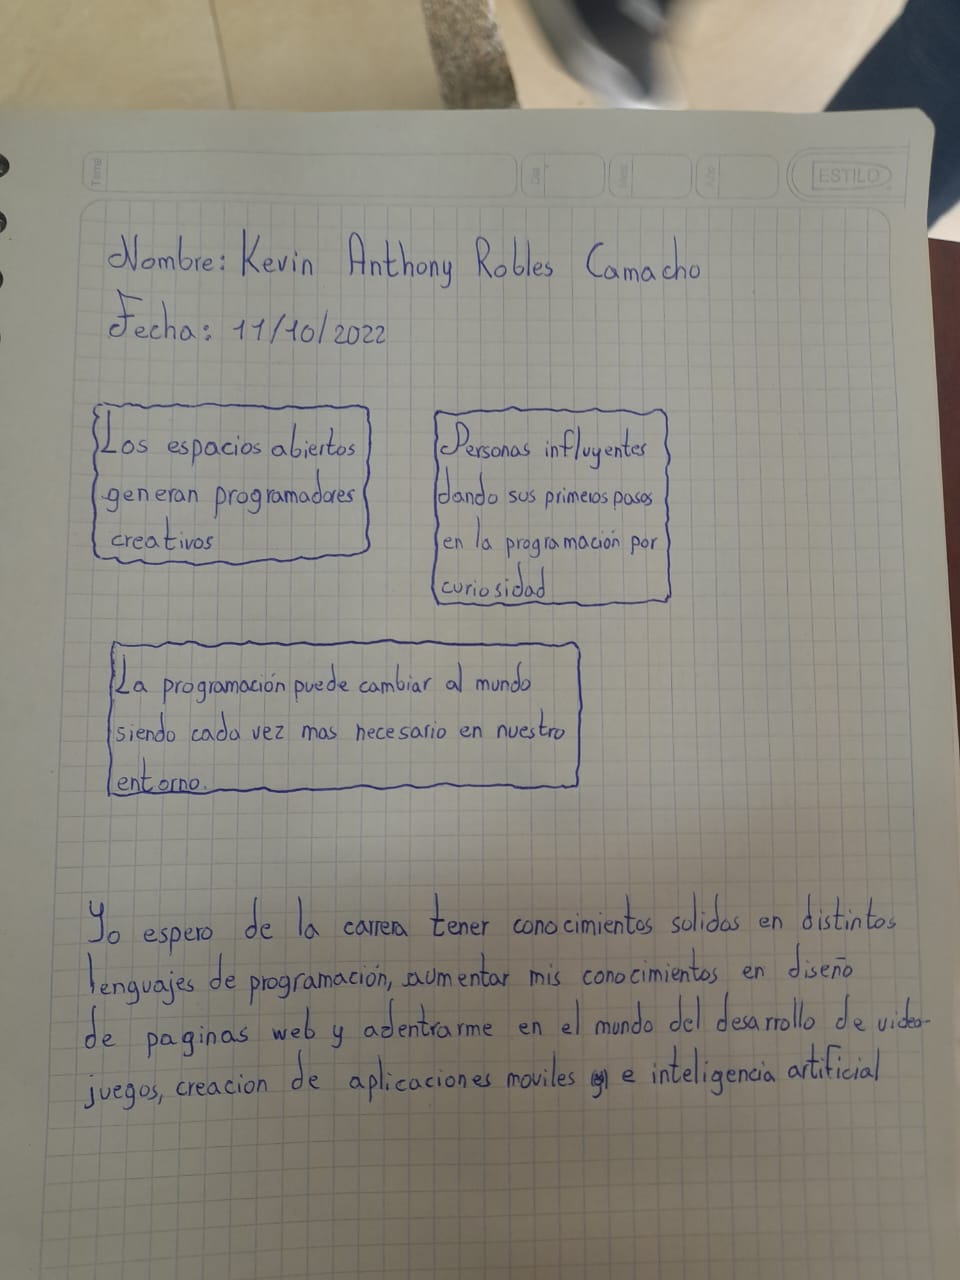 Tema
Día
Mes
Año
ESTILO
Nombre: Kevin Anthony Robles Camacho
Fecha: 11/10/2022
Los espacios abiertos
generan programadores
creativos
Personas influyentes
dando sus primeros pasos
en la programación por
curiosidad
La programación puede cambiar al mundo
siendo cada vez mas necesario en nuestro
entorno.
Yo espero de la carrera tener conocimientos solidos en distintos
lenguajes de programación, aumentar mis conocimientos en diseño
de paginas web y adentrarme en el mundo del desarrollo de video-
juegos, creacion de aplicaciones moviles e inteligencia artificial